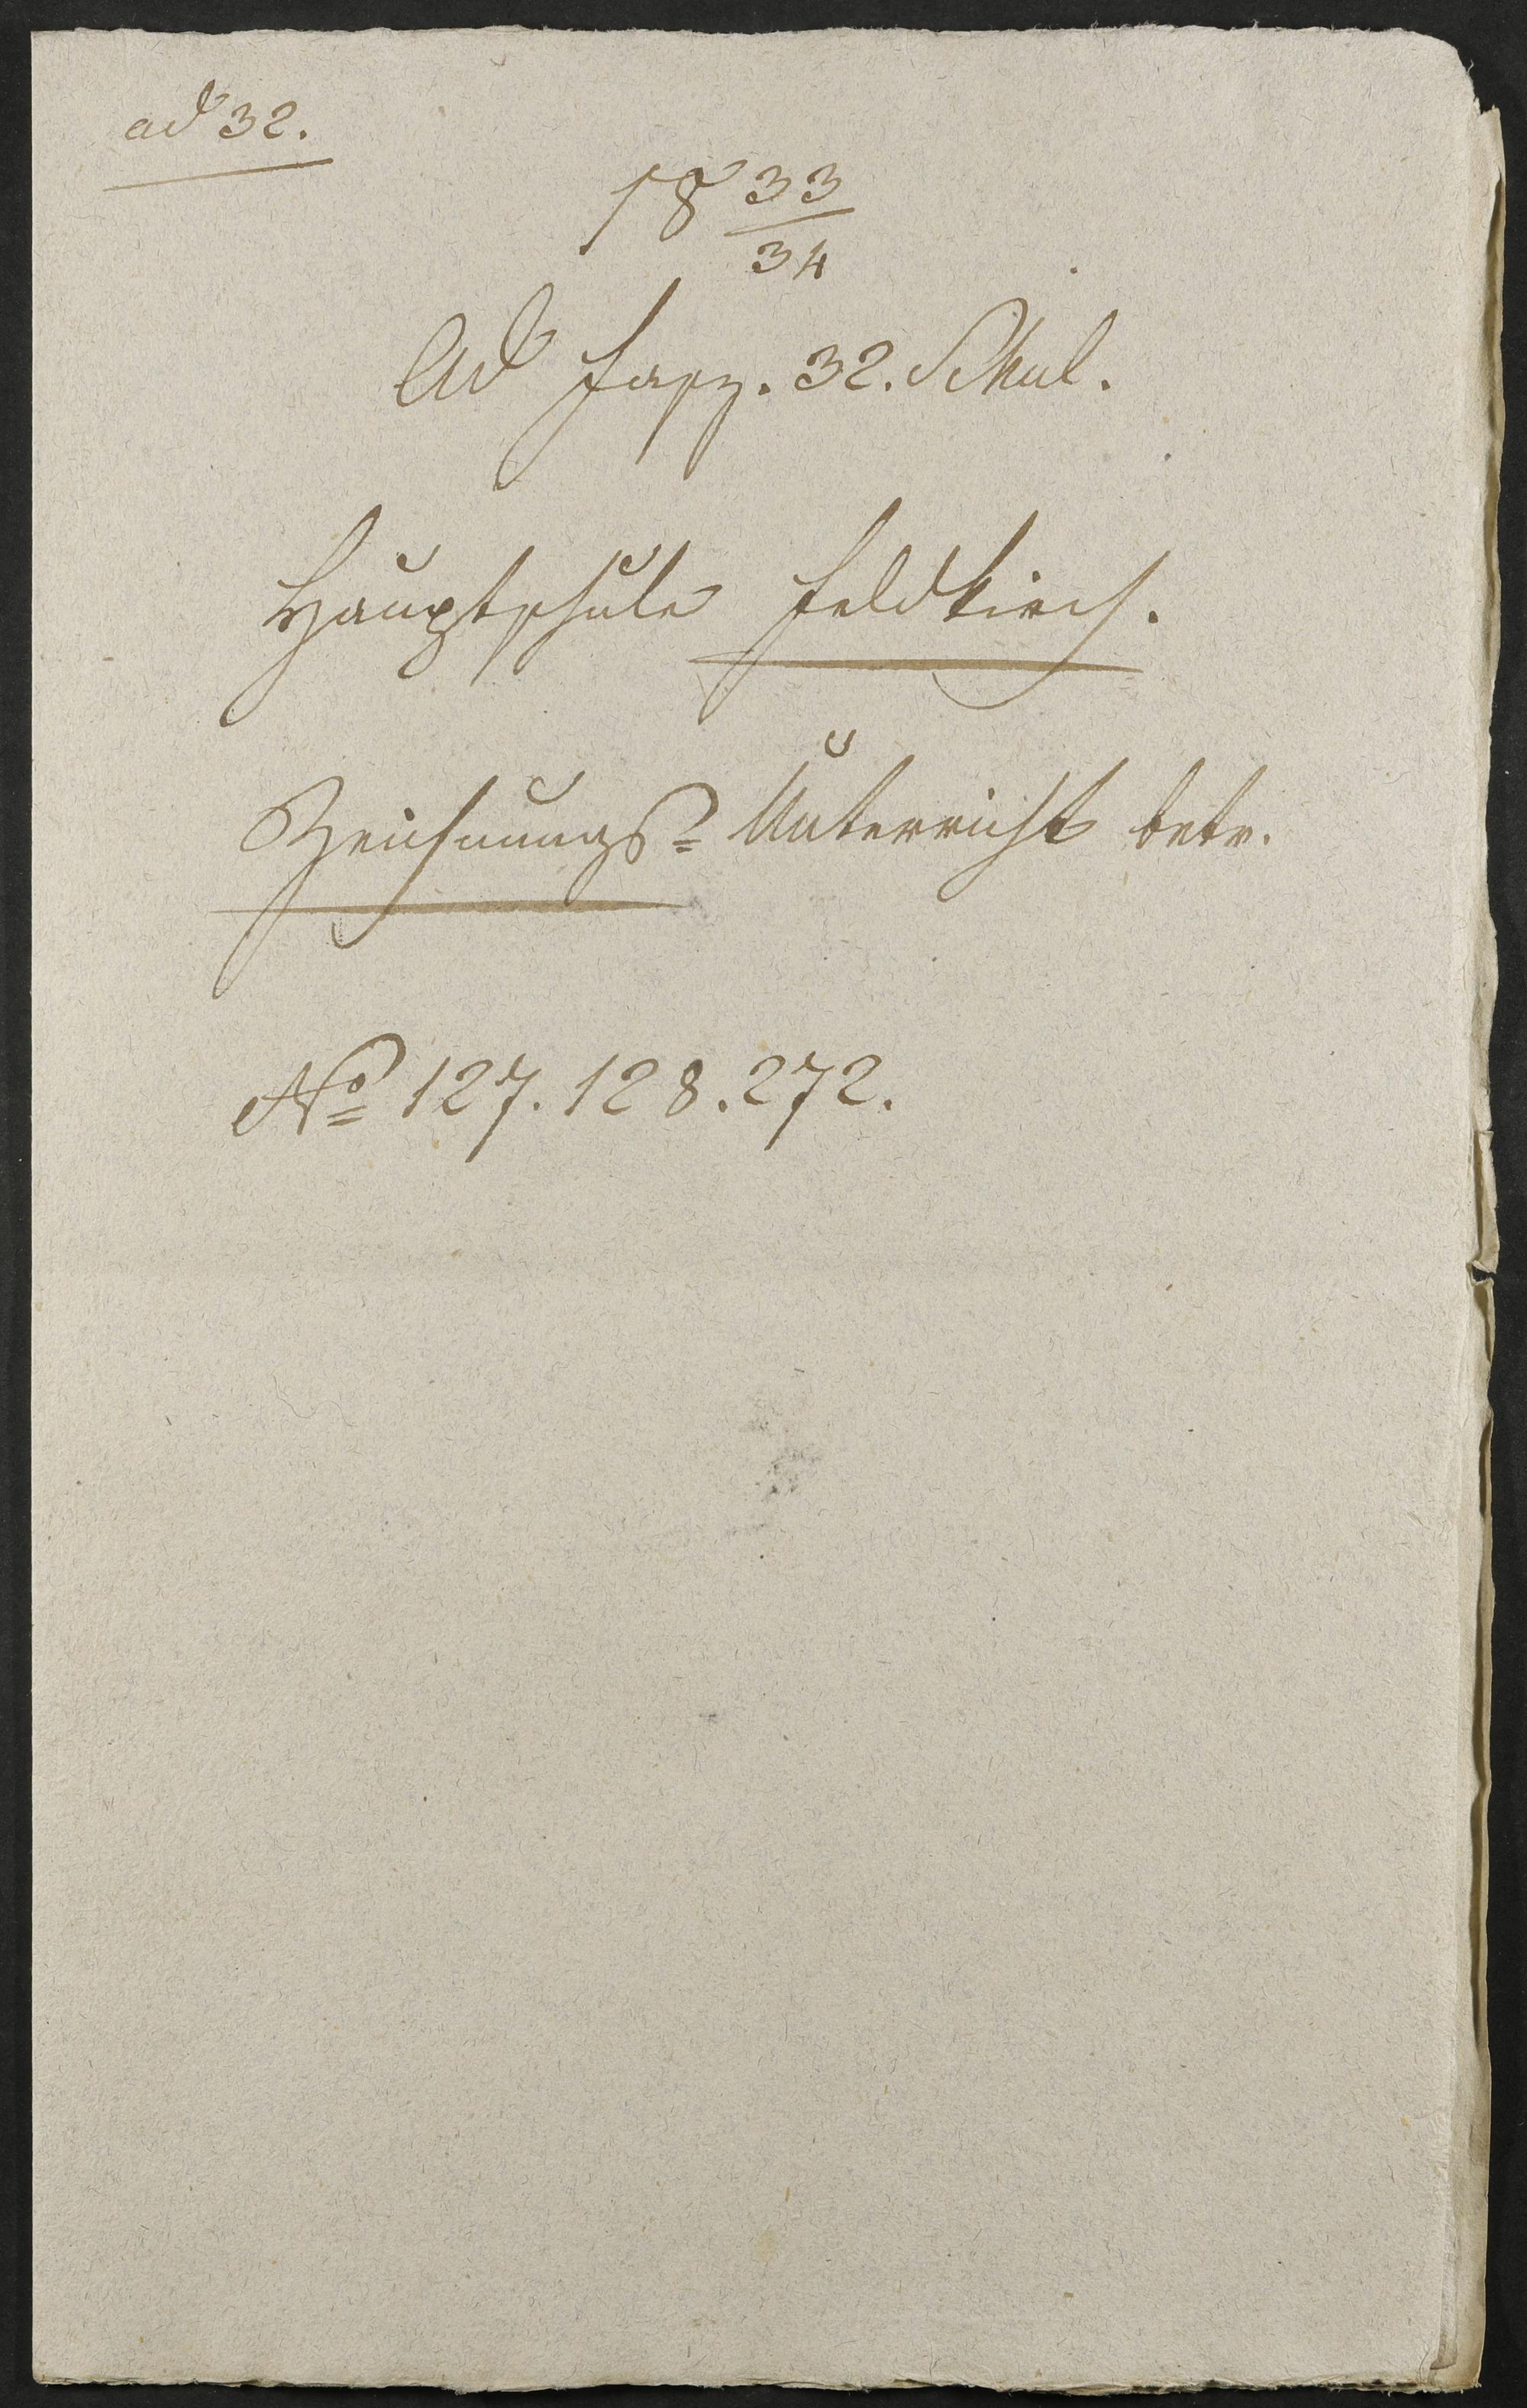 ad 32.
18 33/34
Ad Fasz. 32. Schul.
Hauptschule Feldkirch.
Zeichnungs= Unterricht betr.
No 127. 128. 272.